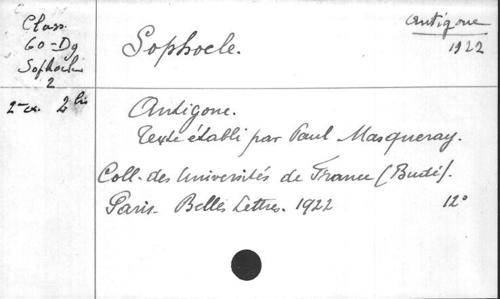 Class.
60=Dg
Sophocle
2
2me ex. 2 bis
Sophocle.
Antigone
1922
Antigone.
Texte établi par Paul Masqueray.
Coll. des Universités de France (Budé).
Paris. Belles Lettres. 1922 12°